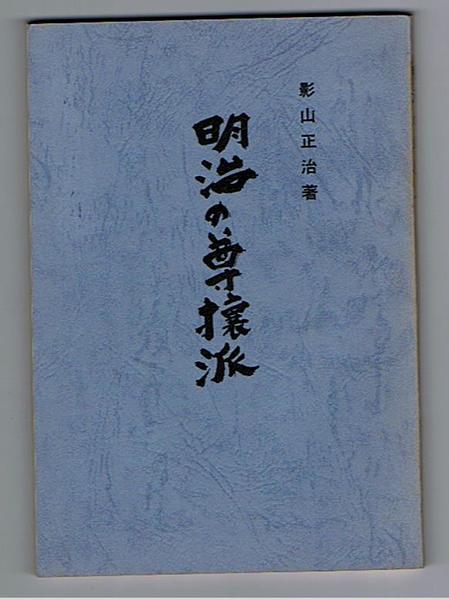 影山正治著
明治の尊攘派